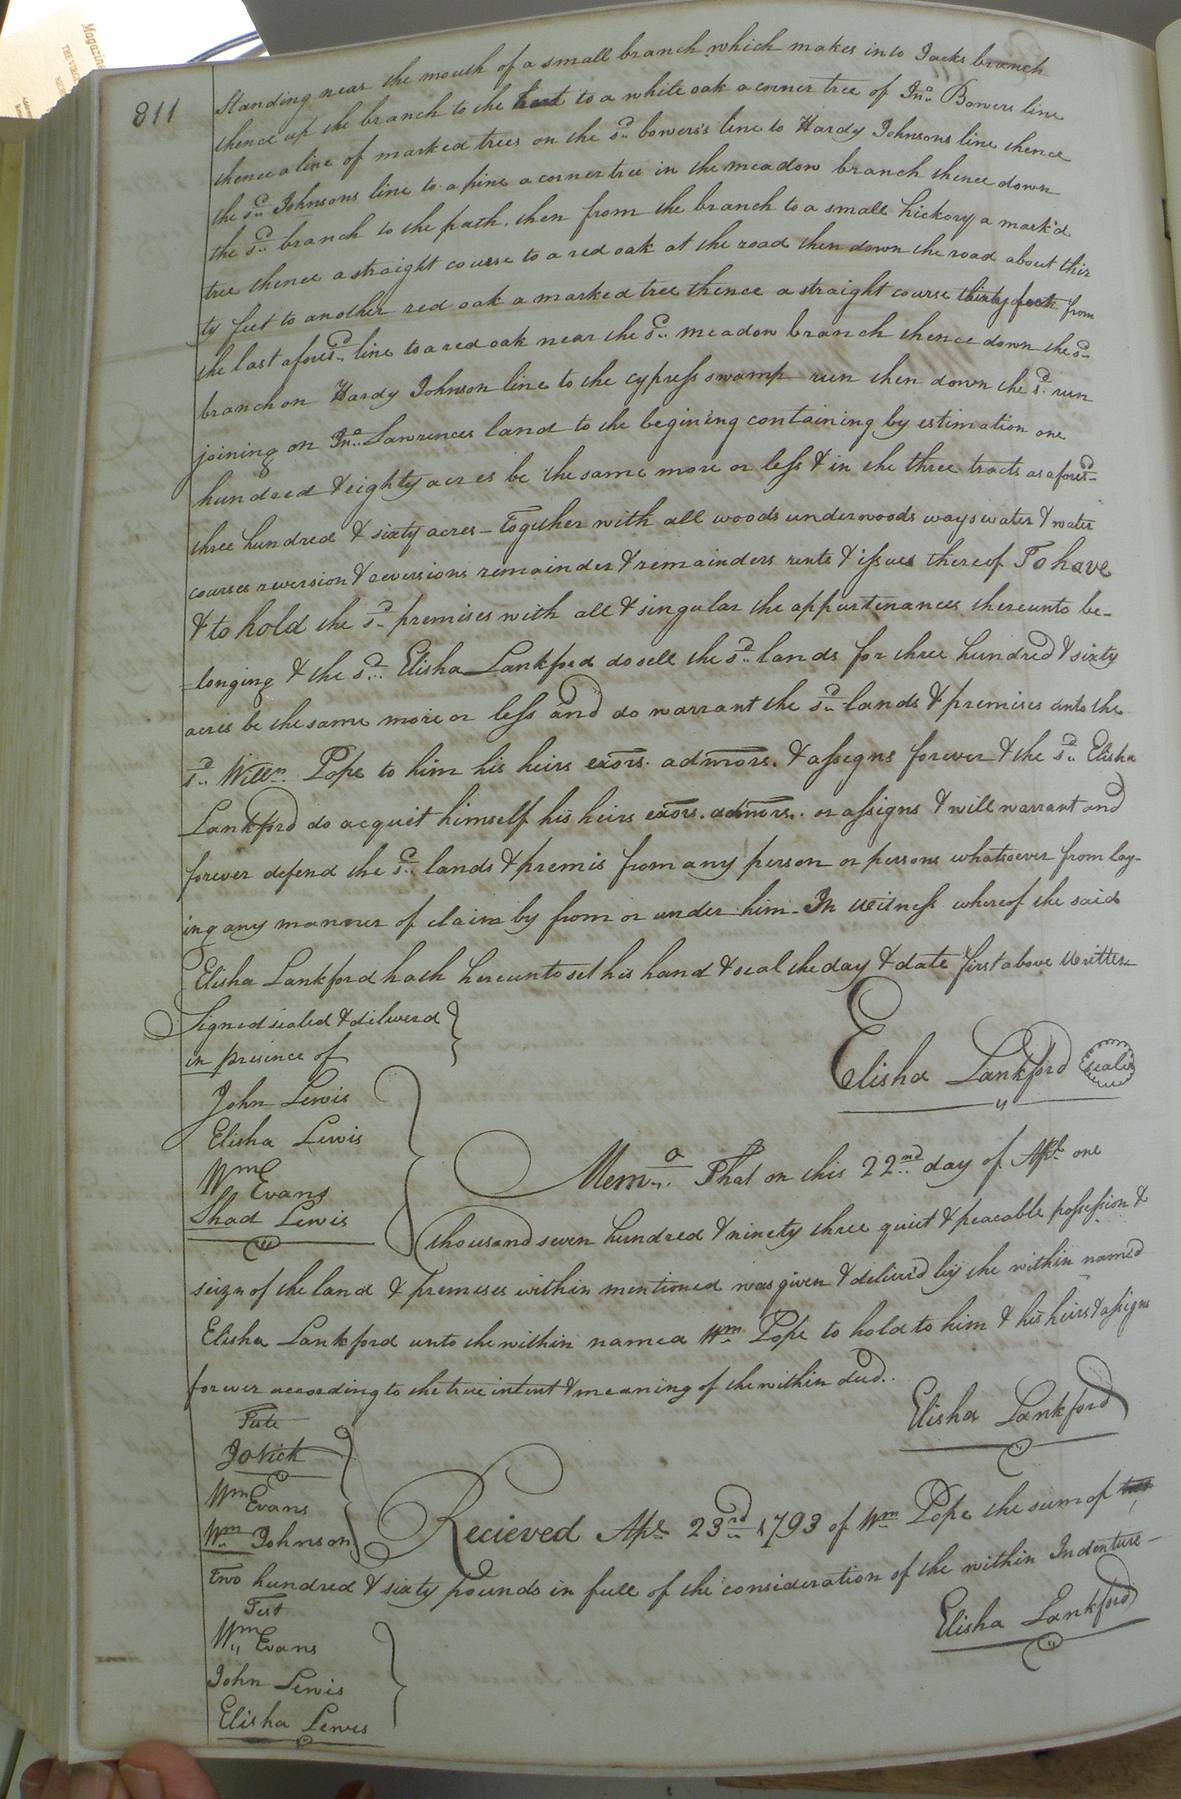 Magazine
811
Standing near the mouth of a small branch which makes into Jacks branch
thence up the branch to the head to a white oak a corner tree of Jno. Bowers line
thence a line of marked trees on the sd. bowers's line to Hardy Johnsons line thence
the sd. Johnsons line to a pine a corner tree in the meadow branch thence down
the sd. branch to the path, then from the branch to a small hickory a mark'd
tree thence a straight course to a red oak at the road then down the road about thir
ty feet to another red oak a marked tree thence a straight course thirty feet from
the last aforesd. line to a red oak near the sd. meadow branch thence down the sd.
branch on Hardy Johnson line to the cypress swamp run then down the sd. run
joining on Jno. Lawrences land to the begining containing by estimation one
hundred & eighty acres be the same more or less & in the three tracts as aforesd.
three hundred & sixty acres - together with all woods underwoods ways water & water
courses reversion & reversions remainder & remainders rents & issues thereof To have
& to hold the sd. premises with all & singular the appurtenances thereunto be-
-longing & the sd. Elisha Lankford do sell the sd. lands for three hundred & sixty
acres be the same more or less and do warrant the sd. lands & premises unto the
sd. Willm. Pope to him his heirs exors. admors. & assigns forever & the sd. Elisha
Lankford do acquit himself his heirs exors. admors. or assigns & will warrant and
forever defend the sd. lands & premis from any person or persons whatsoever from lay-
ing any manner of claim by from or under him - In Witness whereof the said
Elisha Lankford hath hereunto set his hand & seal the day & date first above written
Signed sealed & deliverd
in presence of
Elisha Lankford seal
John Lewis
Elisha Lewis
Wm Evans
Shad Lewis
Memo. That on this 22nd day of Apl. one
thousand seven hundred & ninety three quiet & peacable possession &
seizn of the land & premises within mentioned was given & deliver'd by the within named
Elisha Lankford unto the within named Wm Pope to hold to him & his heirs & assigns
forever according to the true intent & meaning of the within deed.
Elisha Lankford
Teste
Jo Vick
Wm Evans
Wm Johnson
Recieved Apl. 23rd 1793 of Wm Pope the sum of two
Two hundred & sixty pounds in full of the consideration of the within Indenture -
Elisha Lankford
Test
Wm Evans
John Lewis
Elisha Lewis